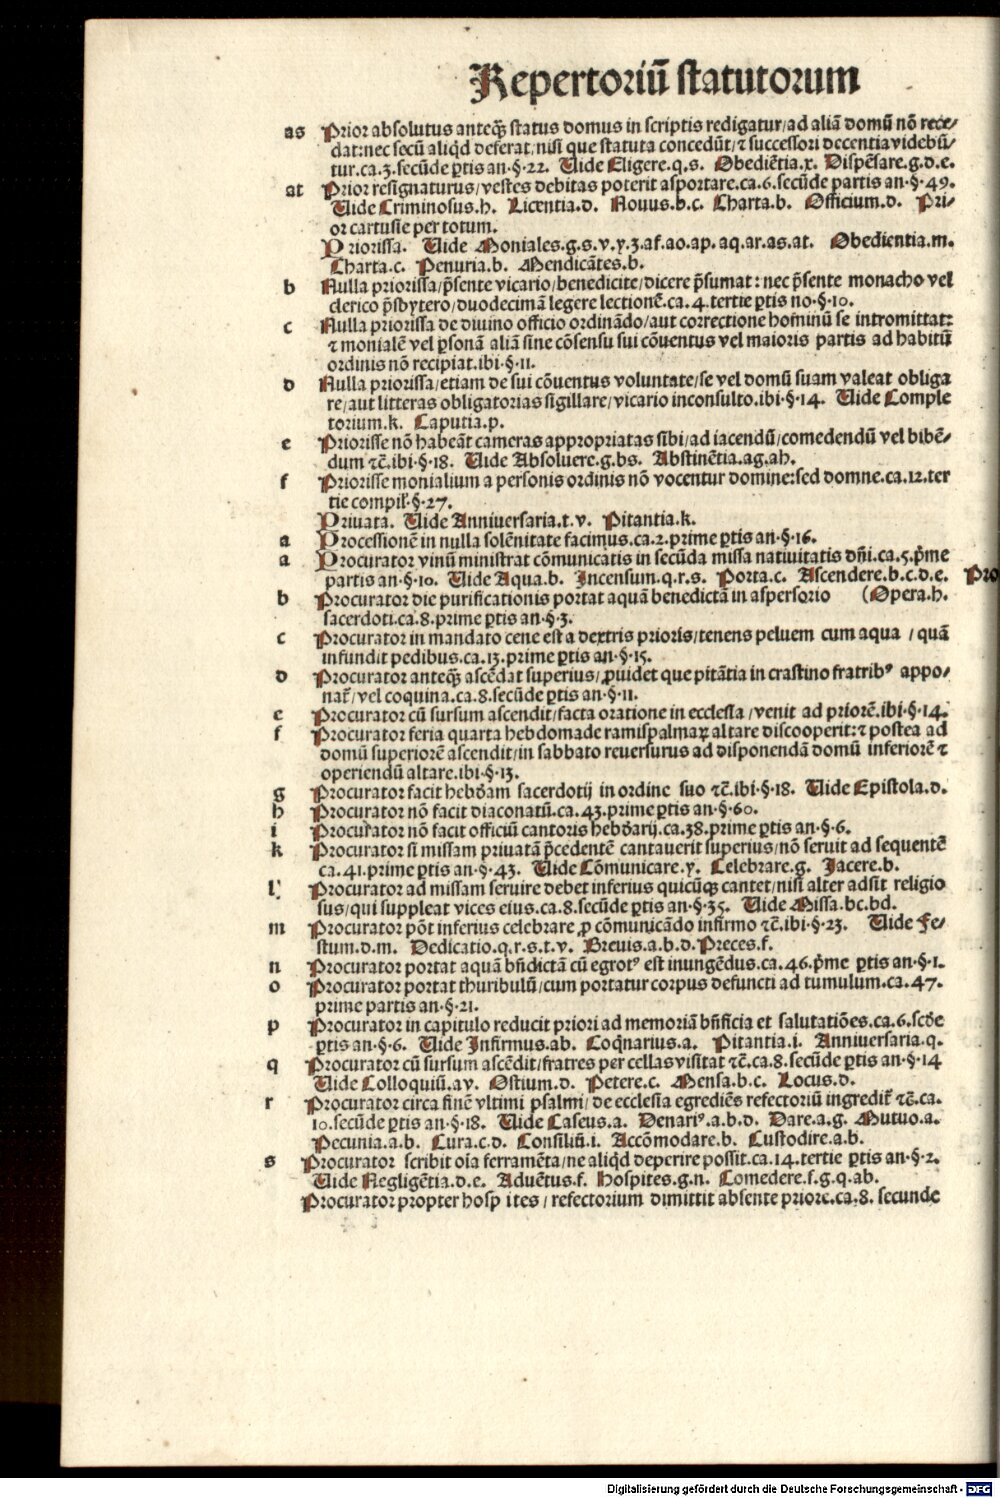 Repertoriū statutorum
as Prior absolutus anteq̄ȝ status domus in scriptis redigatur/ad aliā domū nō rece/
dat:nec secū aliqd deferat/nisi que statuta concedūt/⁊ successori decentia videbū/
tur.ca.3.secūde ꝑtis an.§.22. Uide Eligere.q.s. Obediētia.x. Dispēsare.g.d.e.
at Prior resignaturus/vestes debitas poterit asportare.ca.6.secūde partis an.§.49.
Uide Criminosus.h. Licentia.d. Nouus.b.c. Charta.b. Officium.d. Pri/
or cartusie per totum.
Priorissa. Uide Moniales.g.s.v.y.3.af.ao.ap.aq.ar.as.at. Obedientia.m.
Charta.c. Penuria.b. Mendicātes.b.
b Nulla priorissa/p̄sente vicario/benedicite/dicere p̄sumat: nec p̄sente monacho vel
clerico p̄sbytero/duodecimā legere lectionē.ca.4.tertie ꝑtis no.§.10.
c Nulla priorissa de diuino officio ordinādo/aut correctione hominū se intromittat:
⁊ monialē vel ꝑsonā aliā sine cōsensu sui cōuentus vel maioris partis ad habitū
ordinis nō recipiat.ibi.§.11.
d Nulla priorissa/etiam de sui cōuentus voluntate/se vel domū suam valeat obliga
re/aut litteras obligatorias sigillare/vicario inconsulto.ibi.§.14. Uide Comple
torium.k. Caputia.p.
e Priorisse nō habeāt cameras appropriatas sibi/ad iacendū/comedendū vel bibē/
dum ⁊c̄.ibi.§.18. Uide Absoluere.g.bs. Abstinētia.ag.ah.
f Priorisse monialium a personis ordinis nō vocentur domine:sed domne.ca.12.ter
tie compil̄.§.27.
Priuata. Uide Anniuersaria.t.v. Pitantia.k.
a Processionē in nulla solēnitate facimus.ca.2.prime ꝑtis an.§.16.
a Procurator vinū ministrat cōmunicatis in secūda missa natiuitatis dn̄i.ca.5.p̄me
partis an.§.10. Uide Aqua.b. Incensum.q.r.s. Porta.c. Ascendere.b.c.d.e. Pro
b Procurator die purificationis portat aquā benedictā in aspersorio (Opera.h.
sacerdoti.ca.8.prime ꝑtis an.§.3.
c Procurator in mandato cene est a dextris prioris/tenens peluem cum aqua / quā
infundit pedibus.ca.13.prime ꝑtis an.§.15.
d Procurator anteq̄ȝ ascēdat superius/ꝓuidet que pitātia in crastino fratribꝰ appo/
nat̄/vel coquina.ca.8.secūde ꝑtis an.§.11.
e Procurator cū sursum ascendit/facta oratione in ecclesia/venit ad priorē.ibi.§.14.
f Procurator feria quarta hebdomade ramispalmaꝝ altare discooperit:⁊ postea ad
domū superiorē ascendit/in sabbato reuersurus ad disponendā domū inferiorē ⁊
operiendū altare.ibi.§.13.
g Procurator facit hebdam sacerdotij in ordine suo ⁊c̄.ibi.§.18. Uide Epistola.d.
h Procurator nō facit diaconatū.ca.43.prime ꝑtis an.§.60.
i Procurator nō facit officiū cantoris hebdarij.ca.38.prime ꝑtis an.§.6.
k Procurator si missam priuatā p̄cedentē cantauerit superius/nō seruit ad sequentē
ca.41.prime ꝑtis an.§.43. Uide Cōmunicare.y. Celebrare.g. Jacere.b.
l Procurator ad missam seruire debet inferius quicūqȝ cantet/nisi alter adsit religio
sus/qui suppleat vices eius.ca.8.secūde ꝑtis an.§.35. Uide Missa.bc.bd.
m Procurator pōt inferius celebrare ꝓ cōmunicādo infirmo ⁊c̄.ibi.§.23. Uide Fe/
stum.d.m. Dedicatio.q.r.s.t.v. Breuis.a.b.d.Preces.f.
n Procurator portat aquā bn̄dictā cū egrotꝰ est inungēdus.ca.46.p̄me ꝑtis an.§.1.
o Procurator portat thuribulū/cum portatur corpus defuncti ad tumulum.ca.47.
prime partis an.§.21.
p Procurator in capitulo reducit priori ad memoriā bn̄ficia et salutatiōes.ca.6.scd̄e
ꝑtis an.§.6. Uide Infirmus.ab. Coq̄narius.a. Pitantia.i. Anniuersaria.q.
q Procurator cū sursum ascēdit/fratres per cellas visitat ⁊c̄.ca.8.secūde ꝑtis an.§.14
Uide Colloquiū.av. Ostium.d. Petere.c. Mensa.b.c. Locus.d.
r Procurator circa finē vltimi psalmi/de ecclesia egrediēs refectoriū ingredit̄ ⁊c̄.ca.
10.secūde ꝑtis an.§.18. Uide Caseus.a. Denariꝰ.a.b.d. Dare.a.g. Mutuo.a.
Pecunia.a.b. Cura.c.d. Consiliū.i. Accōmodare.b. Custodire.a.b.
s Procurator scribit oīa ferramēta/ne aliqd deperire possit.ca.14.tertie ꝑtis an.§.2.
Uide Negligētia.d.e. Aduētus.f. Hospites.g.n. Comedere.f.g.q.ab.
Procurator propter hospites/refectorium dimittit absente priore.ca.8. secunde
Digitalisierung gefördert durch die Deutsche Forschungsgemeinschaft - DFG